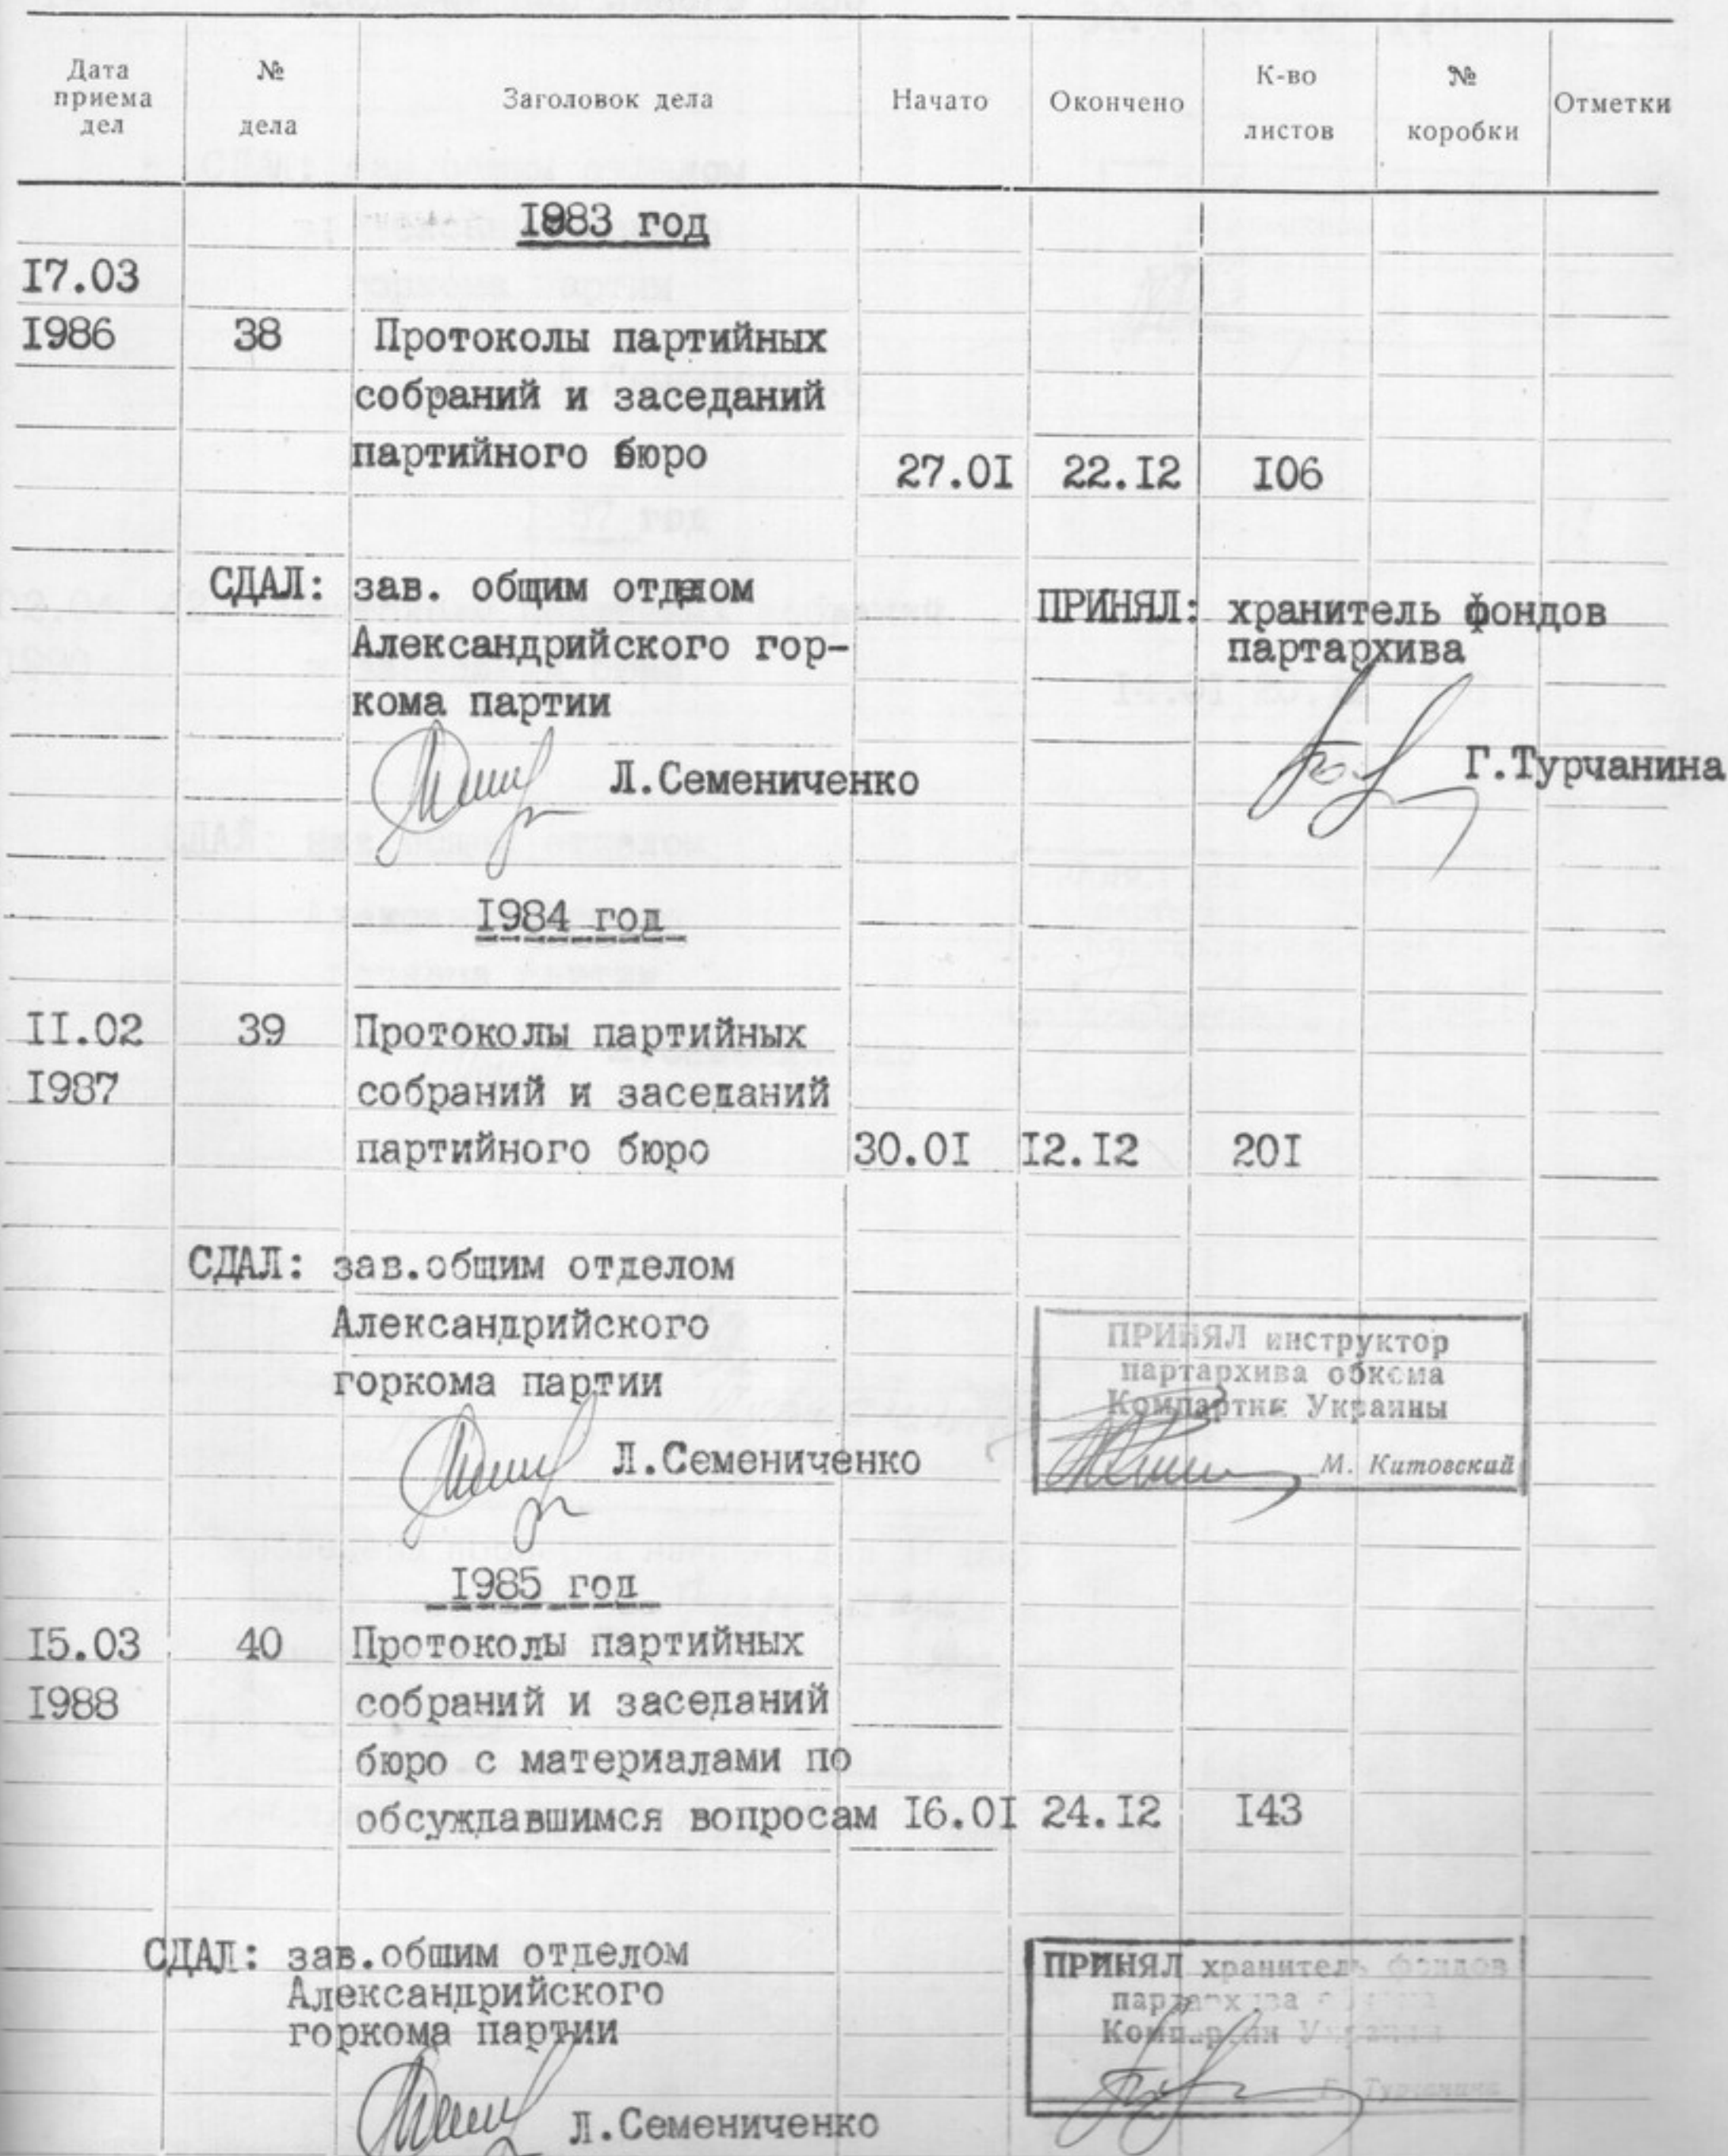 Дата приема дел № дела Заголовок дела Начато Окончено К-во листов № коробки Отметки
1983 год
I7.03
I986 38 Протоколы партийных
собраний и заседаний
партийного бюро 27.0I 22.I2 I06
СДАЛ: зав. общим отделом ПРИНЯЛ: хранитель фондов
Александрийского гор- партархива
кома партии
Л.Семениченко Г.Турчанина
I984 год
II.02 39 Протоколы партийных
I987 собраний и заседаний
партийного бюро 30.0I I2.I2 20I
СДАЛ: зав.общим отделом
Александрийского
горкома партии
Л.Семениченко
ПРИНЯЛ инструктор
партархива обкома
Компартии Украины
М. Китовский
I985 год
I5.03 40 Протоколы партийных
I988 собраний и заседаний
бюро с материалами по
обсуждавшимся вопросам I6.0I 24.I2 I43
СДАЛ: зав.общим отделом
Александрийского
горкома партии
Л.Семениченко
ПРИНЯЛ хранитель фондов
партархива обкома
Компартии Украины
Г. Турчанина